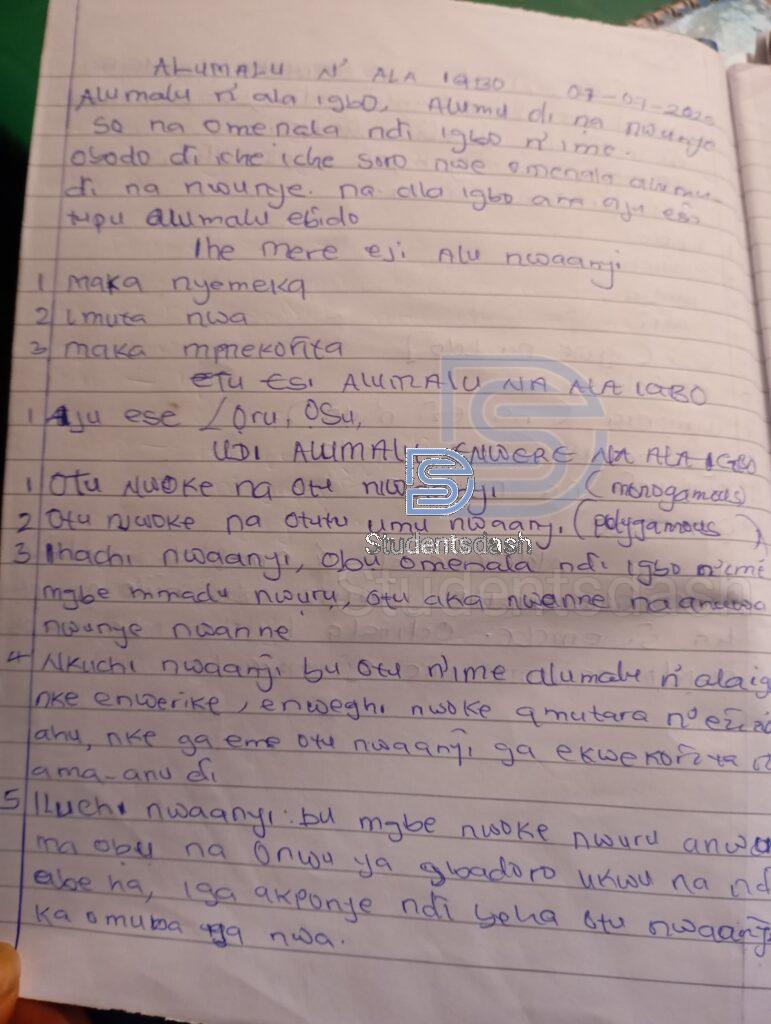 ALUMALU N' ALA IGBO 07-07-2020
Alumalu n' ala igbo, Alumu di na nwunye
so na omenala ndi igbo n'ime.
obodo di iche iche soro nwe omenala alumu
di na nwunye. na ala igbo ana aju ese
tupu alumalu ebido
Ihe mere eji Alu nwaanyi
1 maka nyemeka
2 imuta nwa
3 maka mmekorita
etu esi ALUMALU NA ALA IGBO
1 Aju ese / Oru, Osu,
UDI ALUMALU ENWERE NA ALA IGBO
1 Otu Nwoke na otu nwaanyi (monogamous)
2 Otu nwoke na otutu umu nwaanyi (polygamous)
Studentsdash
3 Ihachi nwaanyi, obu omenala ndi igbo n'ime
mgbe mmadu nwuru, otu aka nwanne na
nwunye nwanne
4 Nkuchi nwaanyi bu otu n'ime alumalu n' ala ig
nke enwerike, enweghi nwoke amutara n'ezi
ahu, nke ga eme otu nwaanyi ga ekwekorita
ama-anu di
5 Iluchi nwaanyi: bu mgbe nwoke nwuru
ma obu na Onwu ya gbadoro ukwu na nd
ebe ha, iga akponye ndi beha otu nwaanyi
ka omuba nwa.